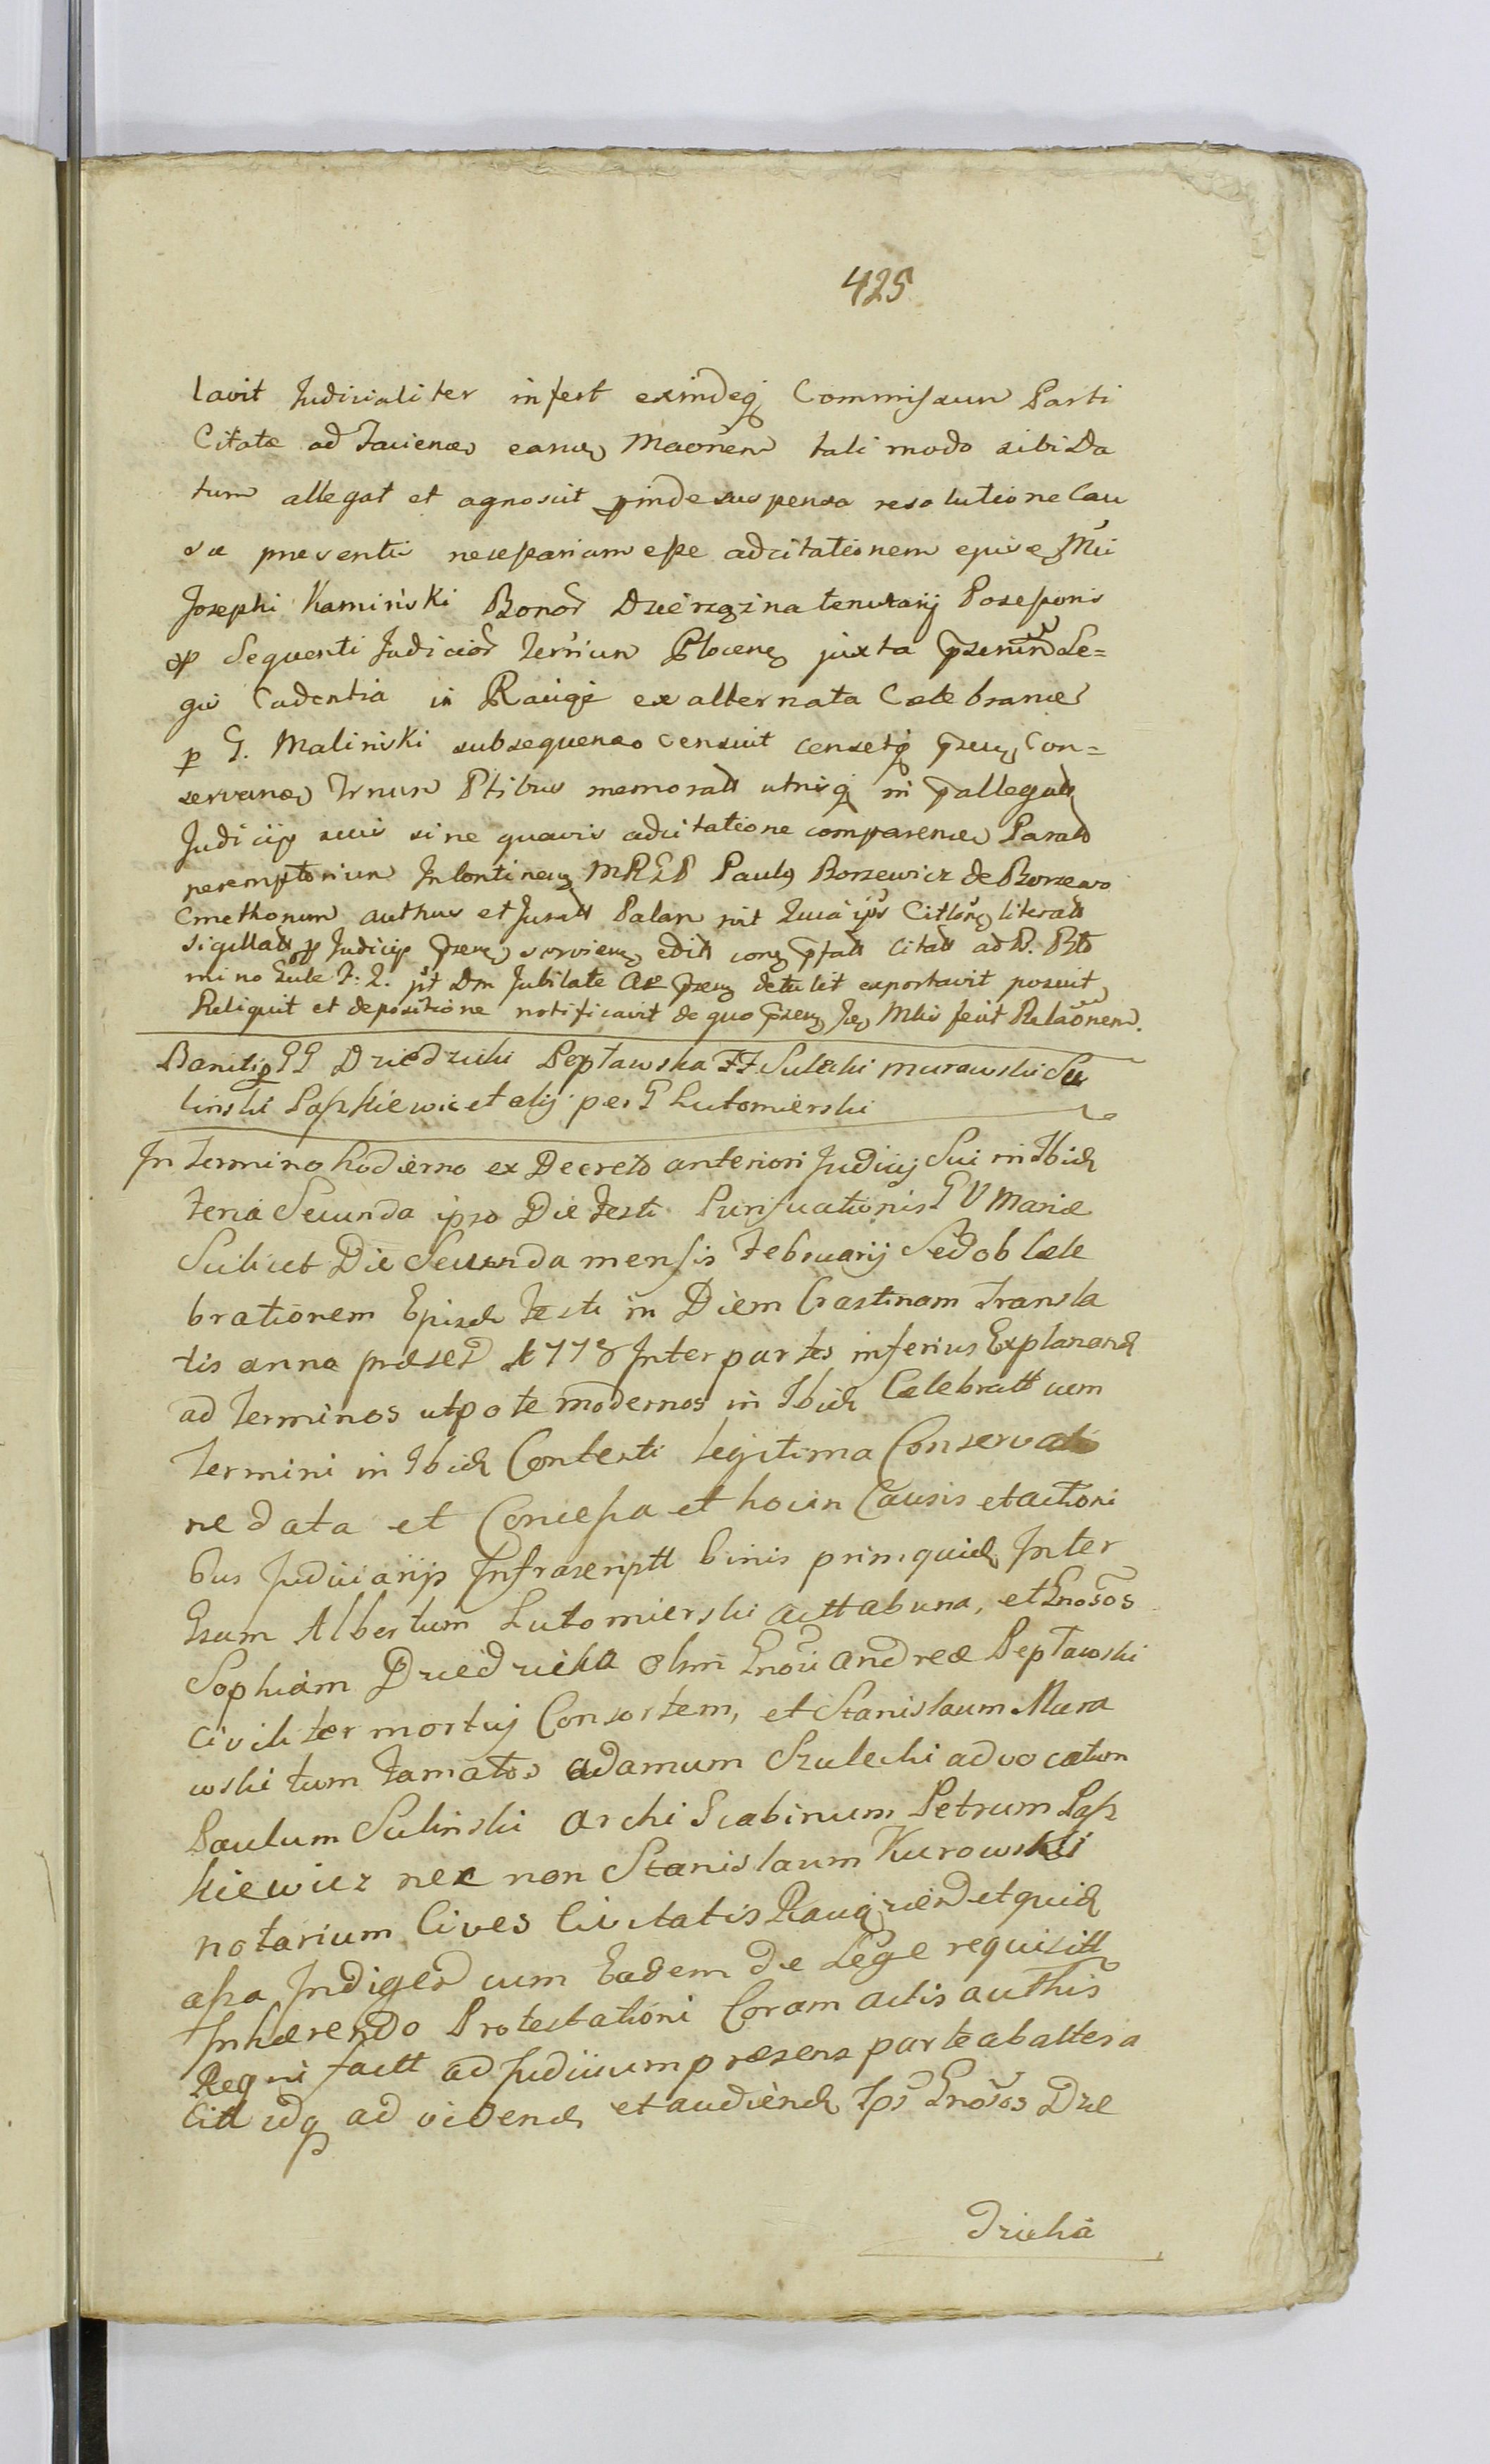 425
lavit Judicialiter infert exindeq Commissum Parti
Citatæ ad faciend eand Maonem tali modo sibi Da
tum allegat et agnoscit proinde suspensa resolutione Cau
sæ præsentis necessarium esse adcitationem ejusd Mci
Josephi Kaminski Bonor Dzierzgzna tenutarij Possessoris
pro Sequenti Judicior Terrium Plocens juxta Le=
gis Cadentia in Raciąż ex alternata Celebrand
p G. Malinski subsequendo censuit censetq Con=
servand Trnum Ptibus memoratt utrisq in
Judicijs suis sine quavis adcitatione comparend Paratt
peremptorium In Continenti MRGD Paulq Borzewicz de Borzewo
Cmethonum authus et Juratt Palam rit Quia ips Cittōn literatt
sigillatt pp Judicijs servien edit Citatt ad P. Bto
mino Sule F. 2. pt Dm Jubilate Ae detulit exportavit posuit
Reliquit et depositione notificavit de quo Mlis fecit Relaōnem.
Banitio GG Dziedzicki Peptawska FF Sulecki Murawski Su
linski Paszkiewic et alij per G Lutomierski
In Termino hodierno ex Decreto anteriori Judicij Sui in Ibid
feria Secunda ipso Die festi Purificationis B V Mariæ
Scilicet Die Secunda mensis Februarij Sed ob Cele
brationem Ejusd Festi in Diem Crastinam Transla
tis anno præsen 1778 Inter partes inferius Explanand
ad Terminos utpote modernos in Ibid Celebratt cum
Termini in Ibid Contesti legitima Conservatio
ne data et Concessa et hoc in Causis et actioni
bus Judiciarijs Infrascriptt binis primquid Inter
Gsum Albertum Lutomierski actt ab una, et Gnosos
Sophiam Dziedzicka olim Gnosi Andreæ Peptawski
civiliter mortuj Consortem, et Stanislaum Mura
wski tum famatos Adamum Szulecki advocatum
Paulum Sulinski Archi Scabinum Petrum Pasz
kiewicz nec non Stanislaum Kurowski
notarium Cives Civitatis Raciązien et quid
assa Indigen cum Eadem de Lege requisitt
Inhærendo Protestationi Coram actis authis
Regni factt ad Judicium præsens parte ab altera
Citt idq ad vidend et audiend Ips Gnosos Dzie
dzicką